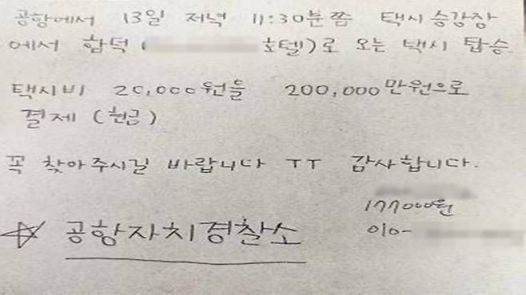 공항에서 13일 저녁 11:30분쯤 택시 승강장
에서 함덕 ( 호텔)로 오는 택시 탑승
택시비 20,000원을 200,000만원으로
결제 (현금)
꼭 찾아주시길 바랍니다 ㅠㅠ 감사합니다.
177000원
☆ 공항자치경찰소 010-